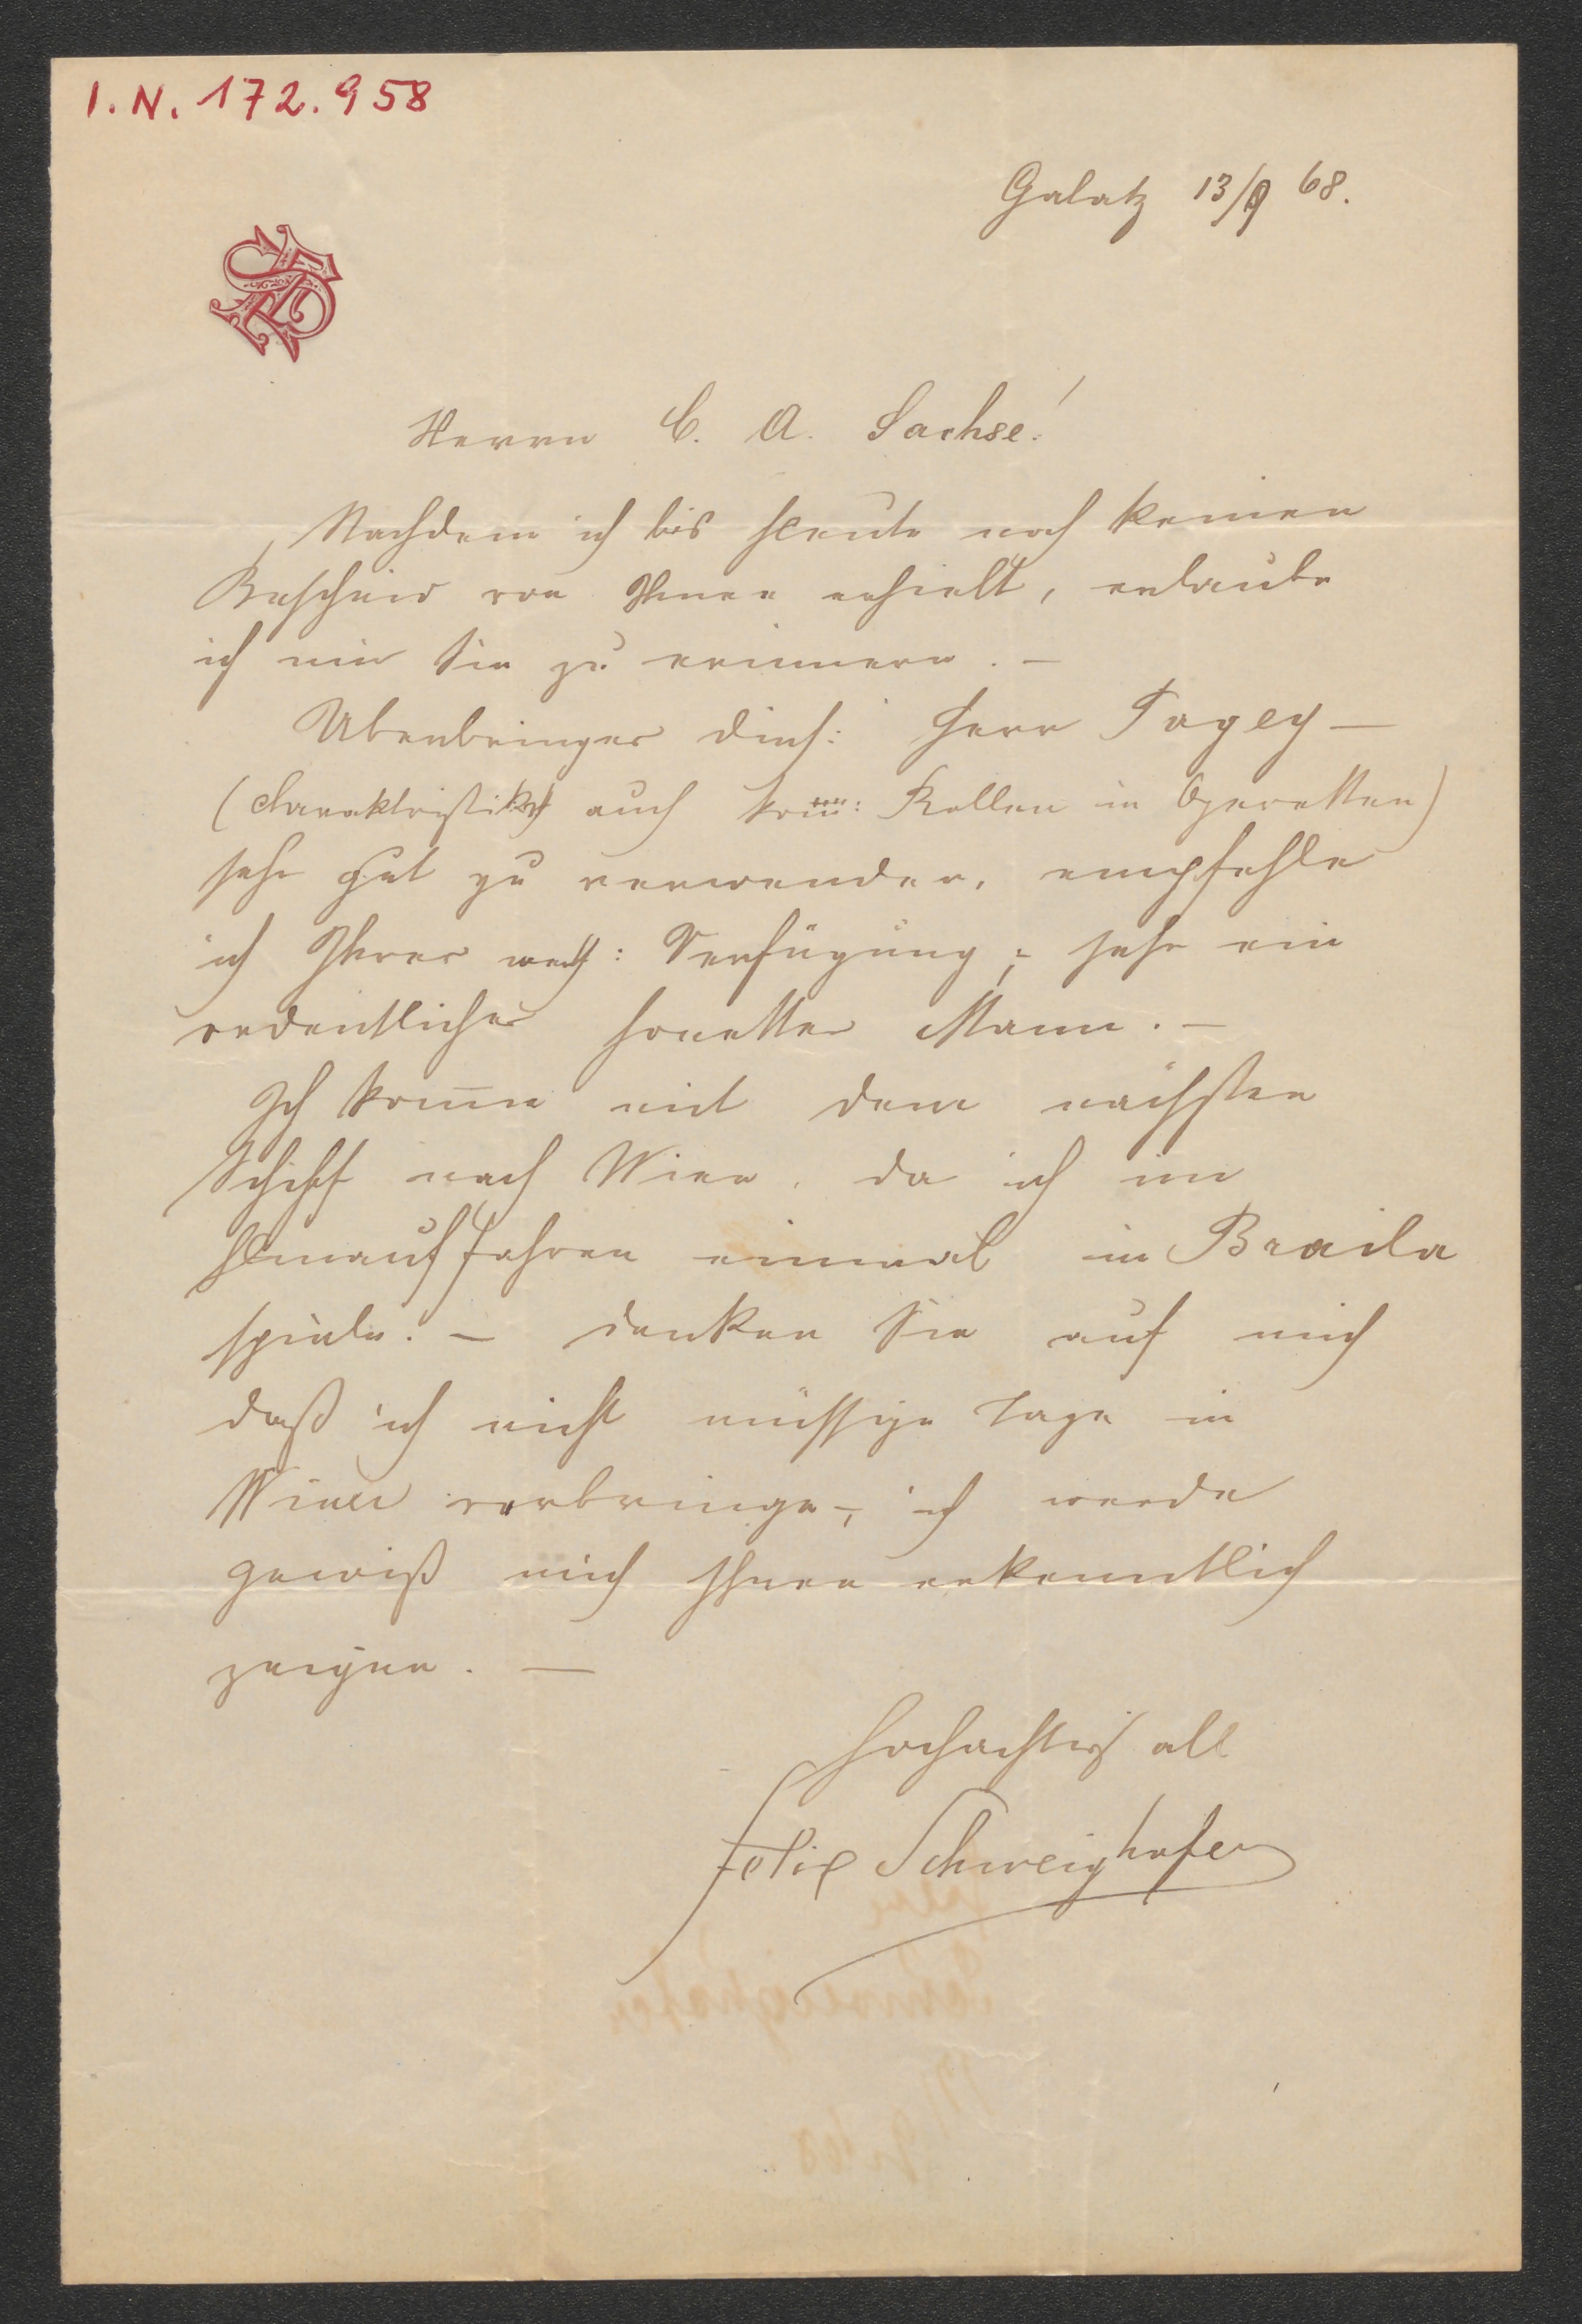 I. N. 172.958
Galatz 13/9 68.
Herrn C. A. Sachse!
Nachdem ich bis heute noch keinen
Bescheid von Ihnen erhielt, erlaube
ich mir Sie zu erinnern. —
Überbringer dies: Herr Pagey —
(Charaktristiker auch kom̅: Rollen in Operetten)
sehr gut zu verwenden, empfehle
ich Ihrer werth: Verfügung; sehr ein
ordentlicher honetter Mann. —
Ich kom̅e mit dem nächsten
Schiff nach Wien, da ich im
Hinauffahren einmal in Braila
spiele. — denken Sie auf mich
daß ich nicht müssige Tage in
Wien verbringe —, ich werde
gewiß mich Ihnen erkenntlich
zeigen. —
Felix Schweighofer